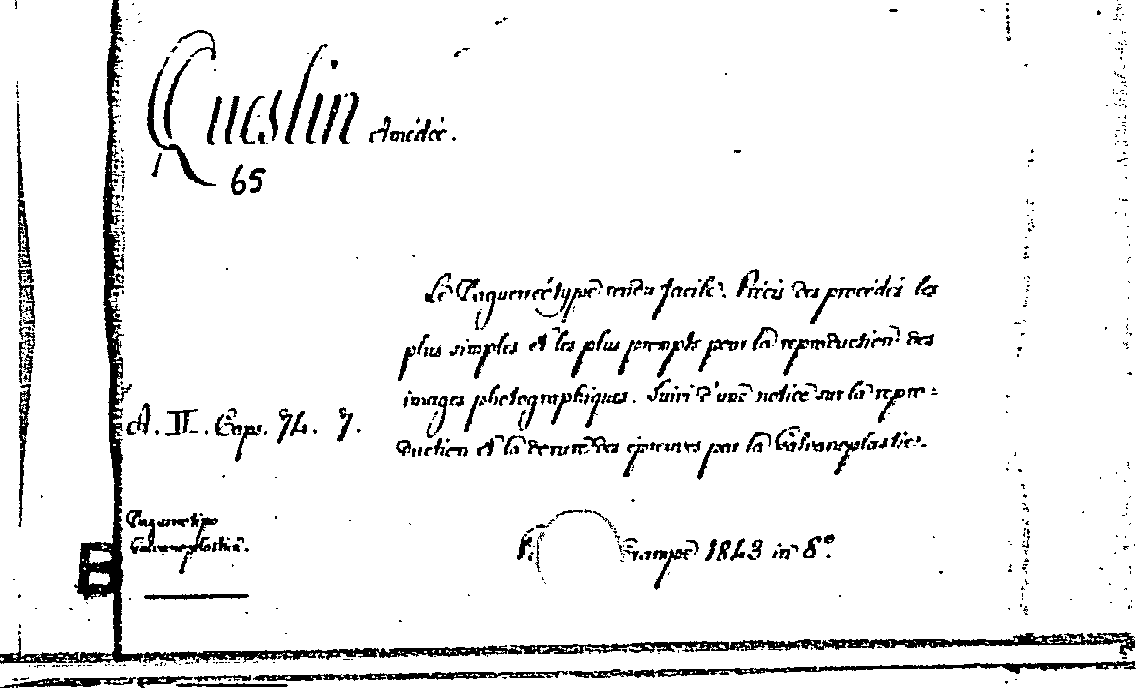 Queslin Amédée.
65
Le Daguerréotype rendu facile. Précis des procédés les
plus simples et les plus prompts pour la reproduction des
images photographiques. Suivi d'une notice sur la repro=
A. II. Caps. 74. 7.
duction et la dorure des épreuves par la Galvanoplastie.
Daguerrotipo
Galvanoplastia.
Etampe 1843 in 8°.
B